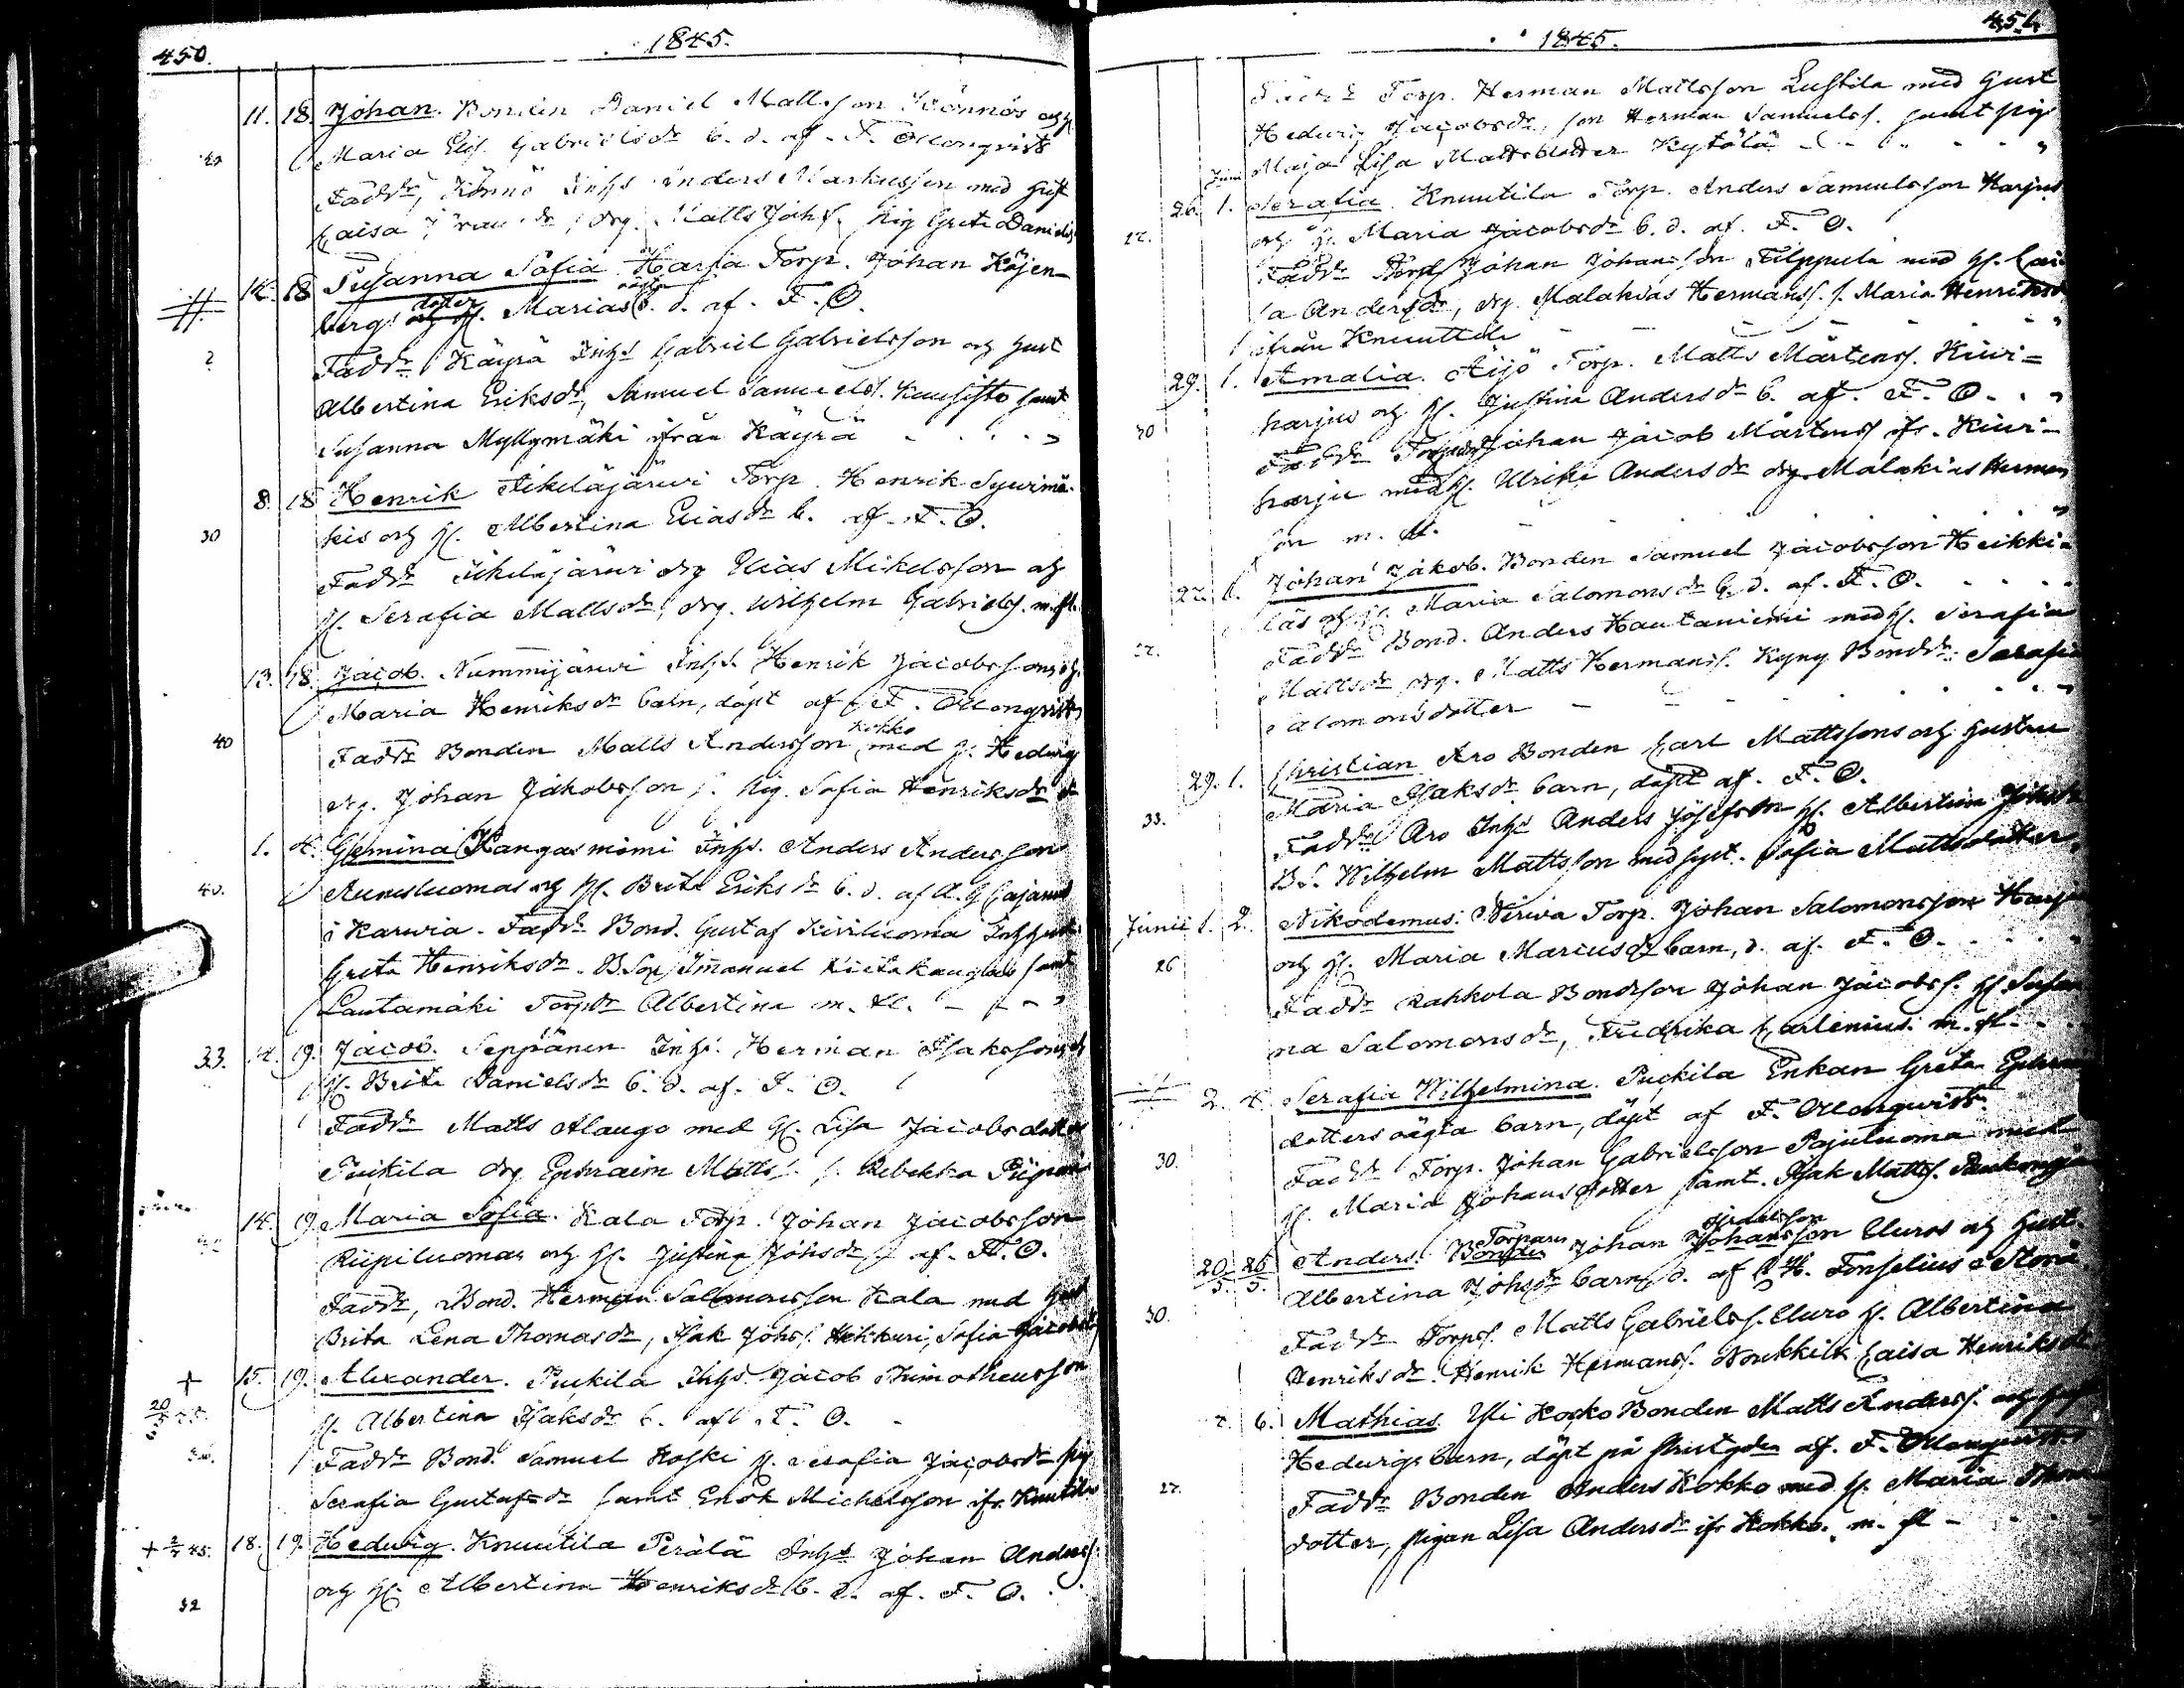 450. 1845.
11. 18. Johan. Bonden Daniel Mattsson Könnös och
Maria Elis. Gabrielsdr b. d. af F. Ollonqvist
Faddr, Könnö Inhs Anders Markusson med hust
Caisa dr, drg. Matts Johs. pig Greta Daniels
14. 18 Susanna Sofia. Harja Torp. Johan Köjen-
bergs doter Marias oägta b. d. af F. O.
? Faddr Käyrä Inhs Gabriel Gabrielsson och hust
Albertina Eriksdr, Samuel Samuels. Kuusisto samt
Susanna Myllymäki ifrån Käyrä
8. 18 Henrik Ikeläjärvi Torp. Henrik Syvimä-
30 kis och H. Albertina Eliasdr b. af F. O.
Faddr Ikeläjärvi drg Elias Mikelsson och
H. Serafia Mattsdr, drg. Wilhelm Gabriels. m. fl.
13. 18. Jacob. Nummijärvi Inhs. Henrik Jacobssons och
Maria Henriksdr barn, döpt af F. Ollonqvist
40 Faddr Bonden Matts Andersson Kokko med H. Hedvig
drg. Johan Jakobsson s. pig. Sofia Henriksdr
1. 4. Gemina Kangasniemi Inhs. Anders Andersson
40. Aunesluomas och H. Brita Eriksdr b. d. af A. G. Cajanus
i Karvia. Faddr Bond. Gustaf Kiviluoma Inh hust
Greta Henriksdr. BSon Emanuel Kietakangas samt
Lautamäki Torpdr Albertina m. fl.
33. 14. 19. Jacob. Seppänen Inhs. Herman Isaksson och
H. Brita Danielsdr b. d. af F. O.
Faddr Matts Alaugo med H. Lisa Jacobsdotter
Puckila drg Ephraim Matts. s. Rebekka
14. 19. Maria Sofia. Kala Torp. Johan Jacobsson
Riipiluomas och H. Justina Johsdr af F. O.
Faddr, Bond. Herman Salomonsson Kala med hust
Brita Lena Thomasdr, Isak Johs. Hekkuri, Sofia Jacobsd
+ 15. 19. Alexander. Puckila Inhs. Jacob Thimotheusson
20/5 45. H. Albertina Isaksdr b. af F. O.
Faddr Bond. Samuel Koski H. Serafia Jacobsdr pig
Serafia Gustafsdr samt Enok Michelsson ifr. Knuutila
+ 2/7 45. 18. 19. Hedvig. Knuutila Perälä Inhs Johan Anders.
32 och H. Albertina Henriksdr b. d. af F. O.
1845. 451.
Faddr Torp. Herman Mattsson Luhtila med hust
Hedvig Jacobsdr, son Herman Samuels. samt pig
Maja Lisa Mattsdotter Kytölä
Juni
26. 1. Serafia. Knuutila Torp. Anders Samuelsson Harjus
22. och H. Maria Jacobsdr b. d. af F. O.
Faddr Torps Johan Johansson Filppula med H. Cai
sa Andersdr, drg. Malakias Hermans. s. Maria Henriksdr
ifrån Knuuttila
29. 1. Amalia. Äijö Torp. Matts Mårtens. Kiwi-
harjus och H. Justina Andersdr b. af F. O.
30 Faddr Torpare Johan Jacob Mårtens ifr. Kiwi-
harju med H. Ulrika Andersdr drg. Malakias Herman
son m. fl.
27. 1. Johan Jakob. Bonden Samuel Jacobsson Heikki-
läs och H. Maria Salomonsdr b. d. af F. O.
22. Faddr Bond. Anders Hautaniemi med H. Serafia
Mattsdr, drg. Matts Hermans. Kyny Bonddr. Serafia
Salomonsdotter
29. 1. Christian Aro Bonden Carl Mattssons och hustru
Maria Isaksdr barn, döpt af F. O.
33. Faddr Aro Inhs Anders Josefsson H. Albertina
B.S. Wilhelm Mattsson med syst. Sofia Mattsdotter.
Junii 1. 2. Nikodemus. Nirva Torp. Johan Salomonsson
26 och H. Maria Marcusdr barn, d. af F. O.
Faddr Rahkola Bondeson Johan Jacobs. H. Susan
na Salomonsdr, Fredrika Carlenius. m. fl.
2. 4. Serafia Wilhelmina. Puckila Enkan Greta Ephraims
dotters oägta barn, döpt af F. Ollonqvist.
30. Faddr Torp. Johan Gabrielsson Pajuluoma med
H. Maria Johansdotter samt. Isak Matts.
20/5. 26/5. Anders. Bonden Torparen Johan Johansson Isralsson Auros och hust
Albertina Johsdr barn, d. af A. H. Fonselius i Storå.
30. Faddr Torps. Matts Gabriels. Auro H. Albertina
Henriksdr. Henrik Hermans. Caisa Henriksdr
2. 6. Mathias. Yli Kocko Bonden Matts Anders. och hust
Hedvigs barn, döpt på af F. Ollonqvist.
27. Faddr Bonden Anders Kokko med H. Maria Thomas
dotter, pigan Lisa Andersdr ifr Kokko. m. fl